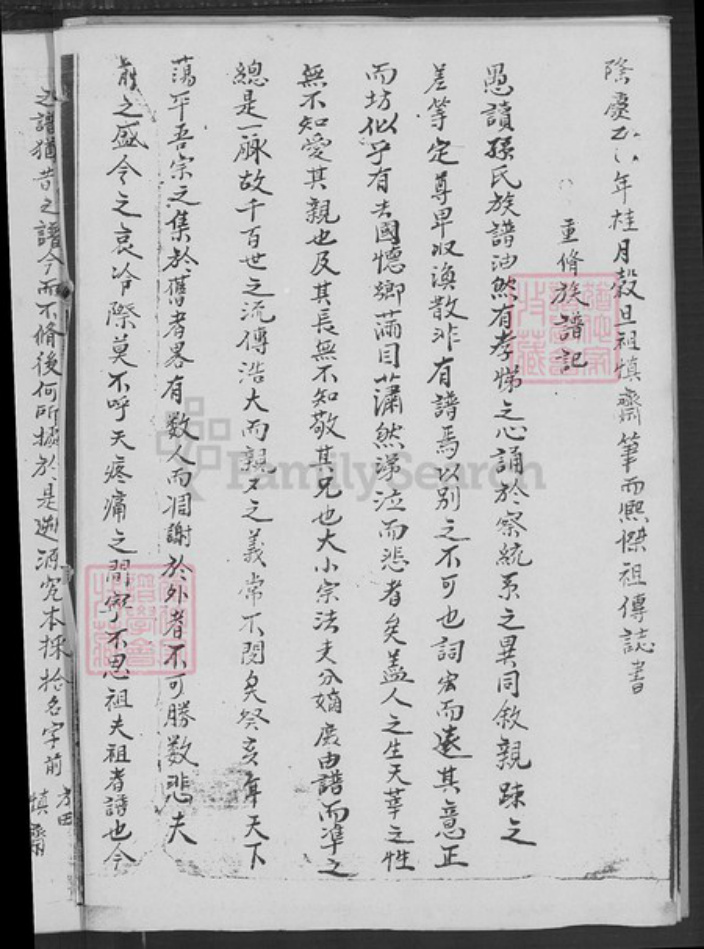 隆慶五年桂月穀旦祖慎齋筆而熙傑祖傳誌書
重脩族譜記
愚讀孫氏族譜油然有孝悌之心誦於察統系之異同敘親踈之
差等定尊卑収渙散非有譜焉以別之不可也詞宏而遠其意正
而坊似乎有去國懷鄉滿目蕭然涕泣而悲者矣蓋人之生天莘之性
無不知愛其親也及其長無不知敬其兄也大小宗法夫分嫡庶由譜而準之
總是一脉故千百世之流傳浩大而親又之義常不閔矣癸亥年天下
蕩平吾宗之集於舊者畧有数人而凋謝於外者不可勝数悲夫
前之盛今之哀冷際莫不呼天疼痛之間寧不思祖夫祖者譜也今
之譜猶昔之譜今而不脩後何所據於是遡源究本採拾名字前
方田
慎齋
FamilySearch